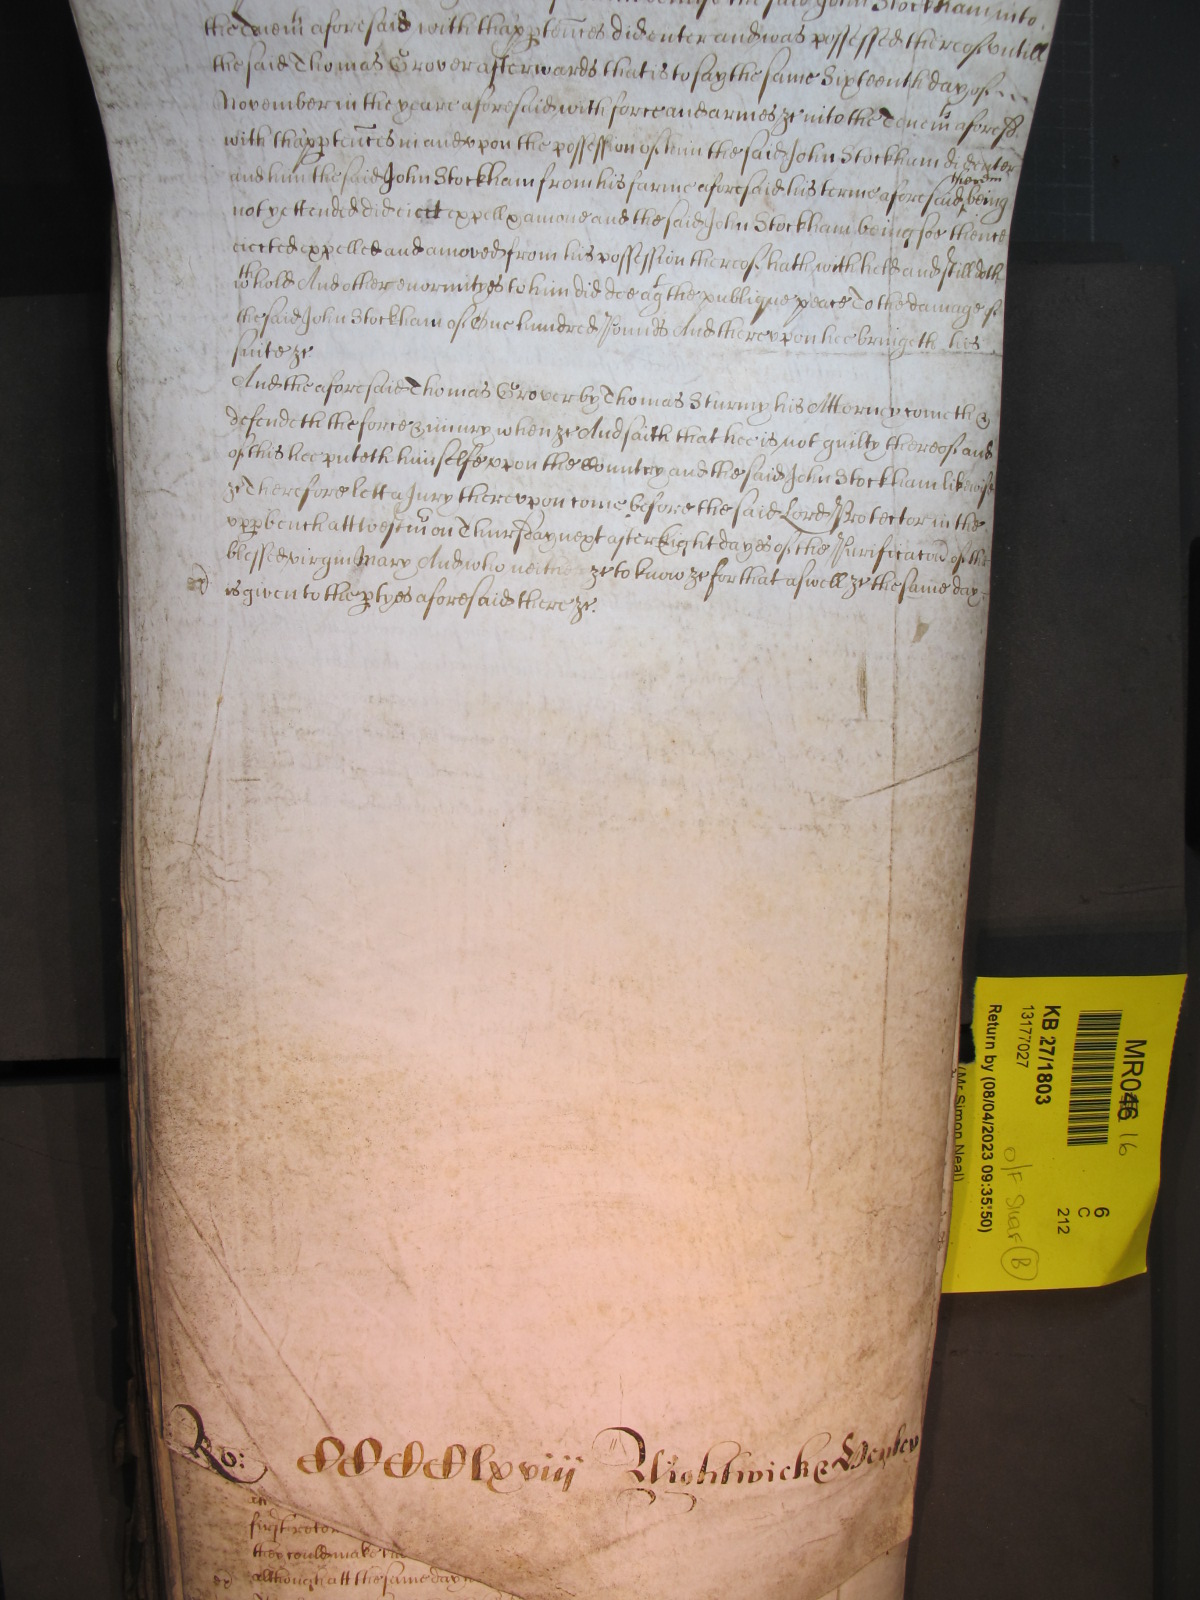 the said John Stockham into
the Tenem̃ aforesaid with thapp̱teñces did enter and was possessed thereof untill
the said Thomas Grover afterwards that is to say the same Sixteenth day of
November in the yeare aforesaid with force and armes &c into the Tenem̃ aforesd
with thapp̱teñces in and upon the possession of him the said John Stockham did enter
and him the said John Stockham from his farme aforesaid his terme aforesaid therein being
not yett ended did eiect expell & amove and the said John Stockham being soe thence
eiected expelled and amoved from his possession thereof hath withheld and still doth
wthold And other enormityes to him did doe agt the publique peace To the damage of
the said John Stockham of One hundred Pounds And thereupon hee bringeth his
suite &c
And the aforesaid Thomas Grover by Thomas Sturmy his Attorney cometh &
defendeth the force & iniury when &c And saith that hee is not guilty thereof and
of this hee putteth himselfe upon the Country and the said John Stockham likewise
&c Therefore lett a Jury thereupon come before the said Lord Protector in the
upp̱ bench att Westm̃ on Thursday next after Eight dayes of the Purificac̃on of the
blessed virgin Mary And who neither &c to know &c for that aswell &c the same day
is given to the p̱tyes aforesaid there &c.
Ro: CCCClxviij Wightwicke
first
they could make
although att the same day
MR046 16
KB 27/1803
13177027
Return by (08/04/2023 09:35:50)
(Mr Simon Neal)
6
C
212
O/F Shelf B